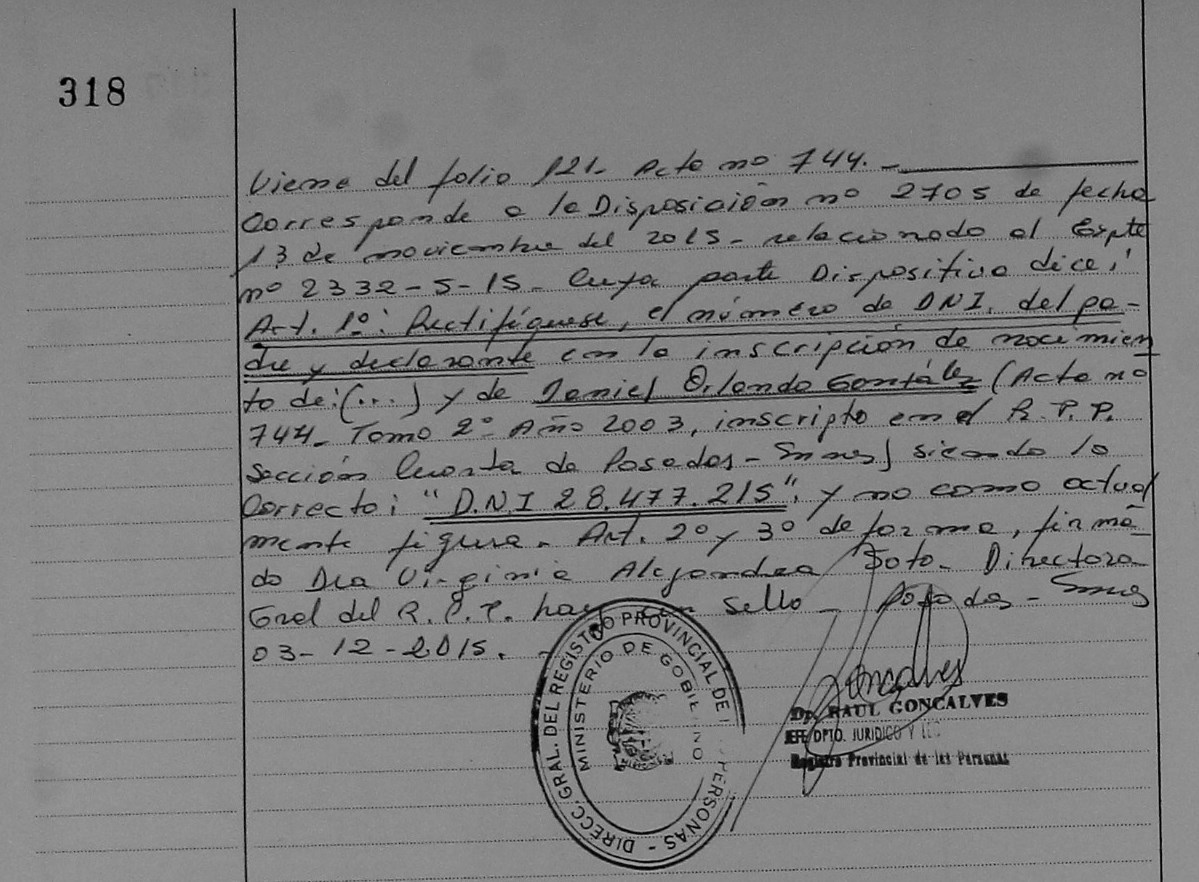 318
Viene del folio 121. Acta nº 744. -
Corresponde a la Disposición nº 2705 de fecha
13 de noviembre del 2015 - relacionado al Expte
nº 2332-S-15 - Cuya parte Dispositiva dice:
Art. 1º: Rectifíquese, el número de DNI. del pa-
dre y declarante en la inscripción de nacimien
to de: (...) y de Daniel Orlando González (Acta nº
744 - Tomo 2º Año 2003, inscripto en el R.P.P.
Sección Cuarta de Posadas - Mnes) siendo lo
Correcto: "D.N.I 28.477.215", y no como actual
mente figura. Art. 2º y 3º de forma, firma
do Dra Virginia Alejandra Soto. Directora
Gral del R.P.P. hay un sello - Posadas - Mnes
03-12-2015. -
DIRECC. GRAL. DEL REGISTRO PROVINCIAL DE PERSONAS -
MINISTERIO DE GOBIERNO
Goncalves
Dr. RAUL GONCALVES
JEFE DPTO. JURIDICO Y
Registro Provincial de las Personas